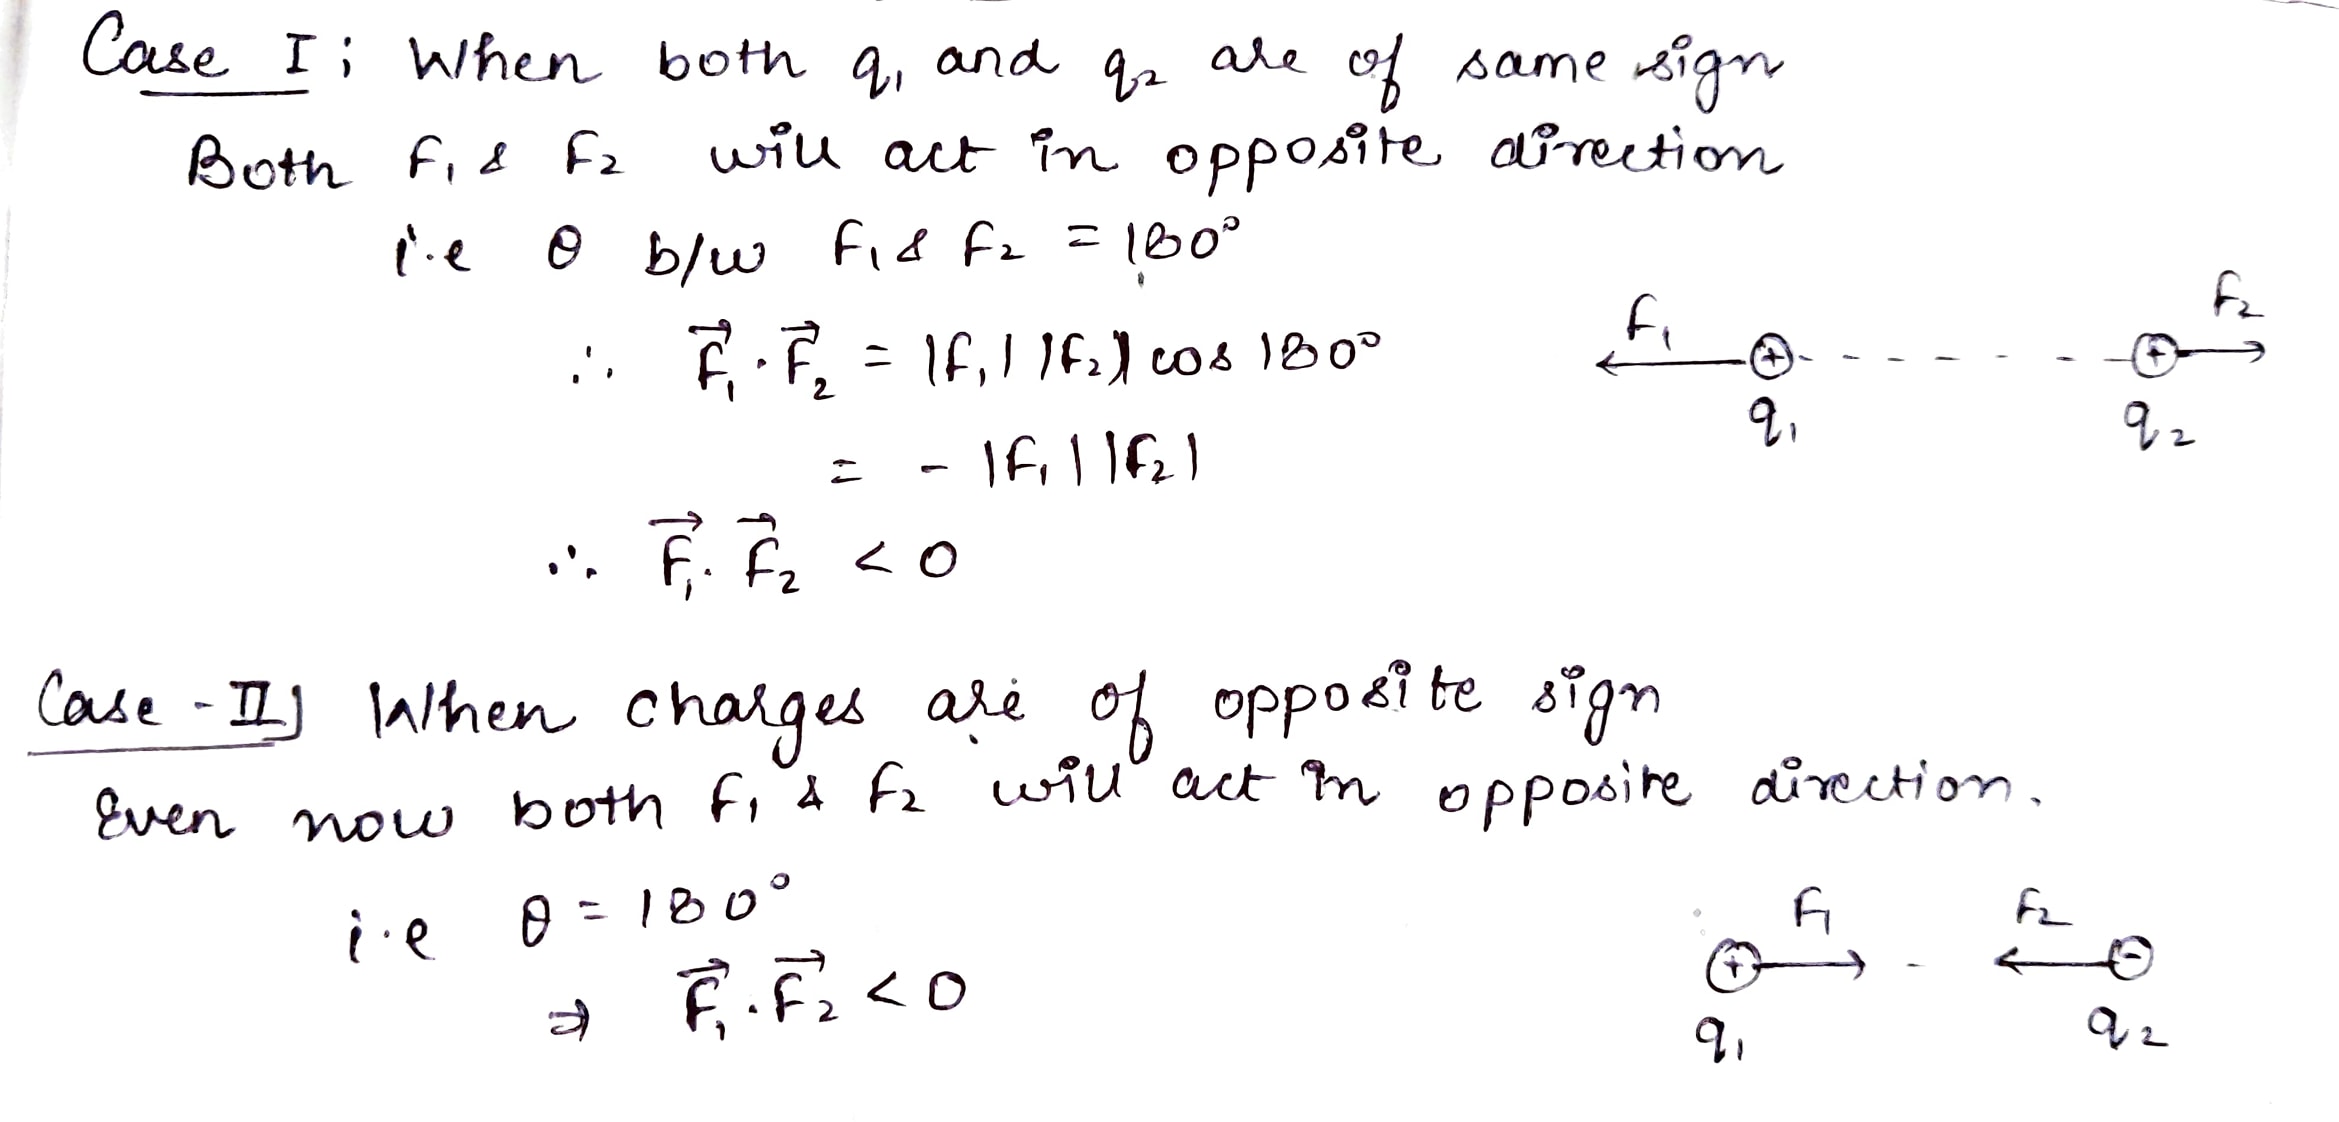 Case I ; When both q₁ and q₂ are of same sign
Both F₁ & F₂ will act in opposite direction
i.e θ b/w F₁ & F₂ = 180°
∴ F⃗₁ · F⃗₂ = |F₁| |F₂| cos 180°
= - |F₁| |F₂|
∴ F⃗₁ · F⃗₂ < 0
F₁ + + F₂
q₁ q₂
Case - II) When charges are of opposite sign
Even now both F₁ & F₂ will act in opposite direction.
i.e θ = 180°
⇒ F⃗₁ · F⃗₂ < 0
F₁ F₂
+ -
q₁ q₂